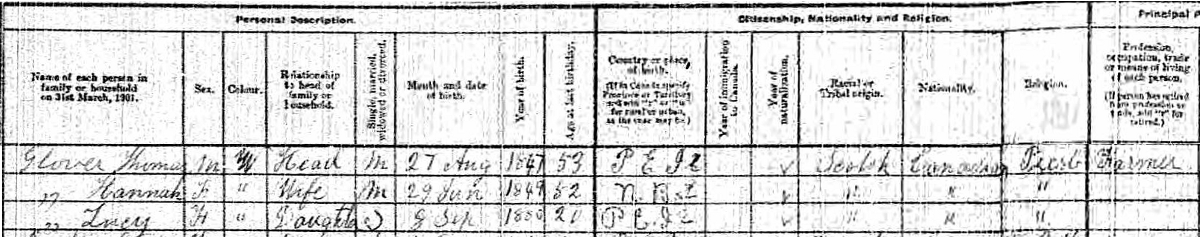 Personal Description. Citizenship, Nationality and Religion. Principal
Name of each person in family or household on 31st March, 1901. Sex. Colour. Relationship to head of family or household. Single, married, widowed or divorced. Month and date of birth. Year of birth. Age at last birthday. Country or place of birth. (If in Canada specify Province or Territory and add "r" or "u" for rural or urban, as the case may be) Year of immigration to Canada. Year of naturalization. Racial or Tribal origin. Nationality. Religion. Profession, occupation, trade or means of living of each person. (If person has retired from profession or trade, add "r" for retired.)
Glover Thomas M W Head M 27 Aug 1847 53 P E I r Scotch Canadian Presb Farmer
" Hannah F " Wife M 29 Jun 1849 52 N. B. r " " "
" Lucy F " Daughter S Sep 1880 20 P E I r " " "